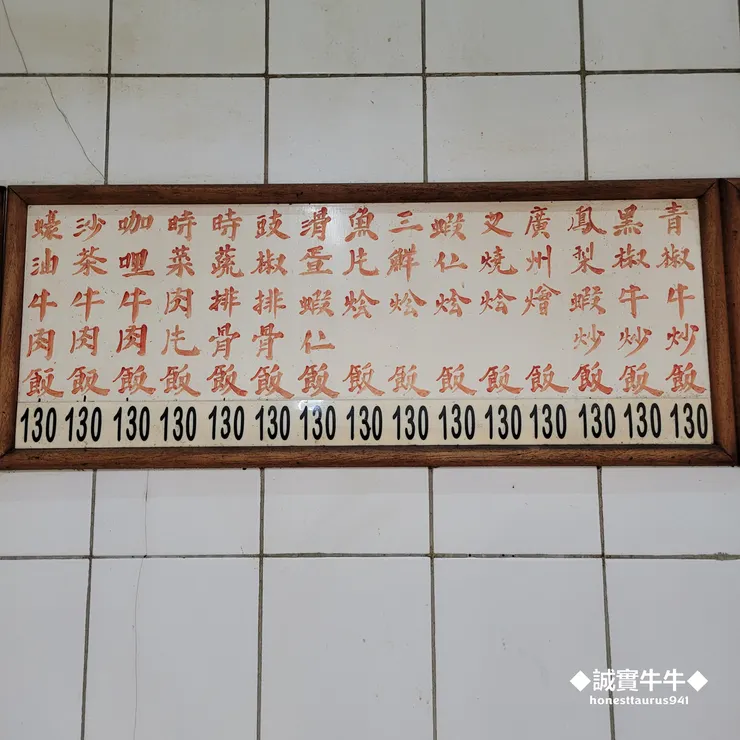 青椒牛炒飯 130
黑椒牛炒飯 130
鳳梨蝦炒飯 130
廣州燴飯 130
叉燒烩飯 130
蝦仁烩飯 130
三鮮烩飯 130
魚片烩飯 130
滑蛋蝦仁飯 130
豉椒排骨飯 130
時蔬排骨飯 130
時菜肉片飯 130
咖哩牛肉飯 130
沙茶牛肉飯 130
蠔油牛肉飯 130
◆誠實牛牛◆
honesttaurus941